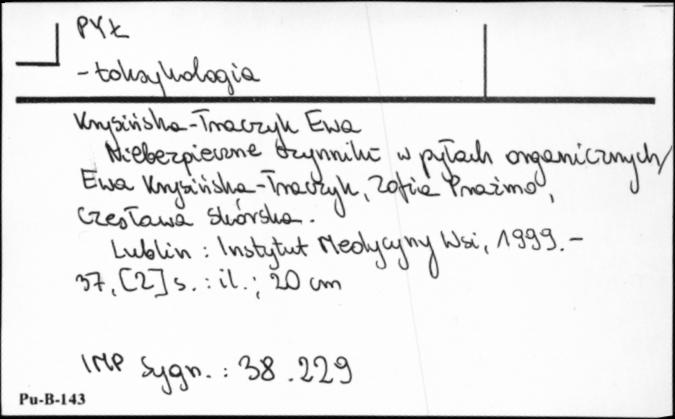 PYŁ
- toksykologia
Krysińska-Traczyk Ewa
Niebezpieczne czynniki w pyłach organicznych/
Ewa Krysińska-Traczyk, Zofia Prażmo,
Czesława Skórska.
Lublin : Instytut Medycyny Wsi, 1999. -
37, [2] s. : il. ; 20 cm
IMP Sygn. : 38.229
Pu-B-143